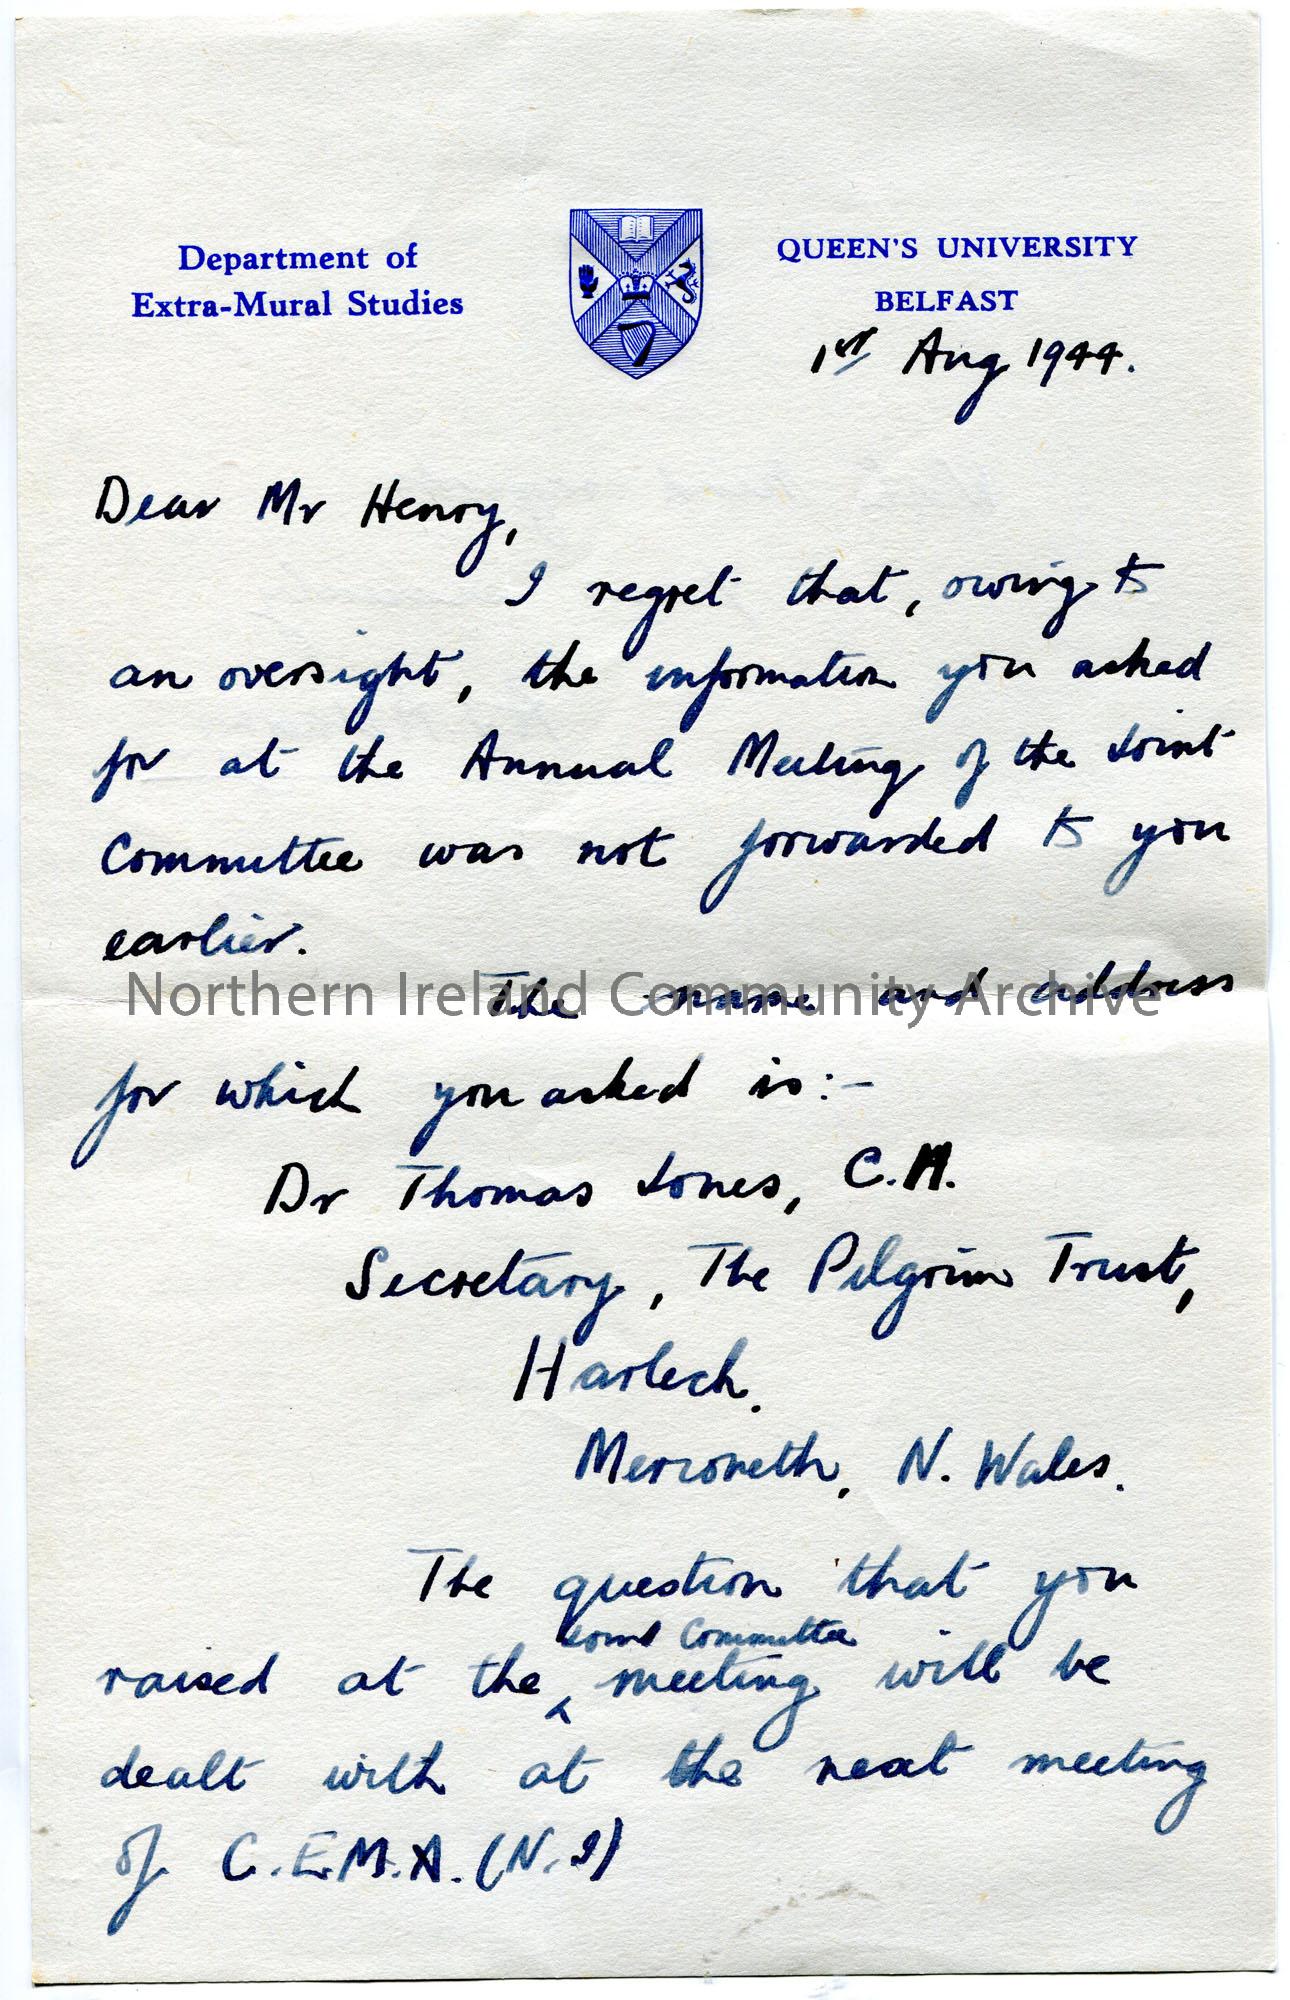 Department of
Extra-Mural Studies
QUEEN'S UNIVERSITY
BELFAST
1st Aug 1944.
Dear Mr Henry,
I regret that, owing to
an oversight, the information you asked
for at the Annual Meeting of the Joint
Committee was not forwarded to you
earlier.
The name and address
Northern Ireland Community Archive
for which you asked is:-
Dr Thomas Jones, C.H.
Secretary, The Pilgrim Trust,
Harlech.
Merioneth, N. Wales.
The question that you
Joint Committee
raised at the ^ meeting will be
dealt with at the next meeting
of C.E.M.A. (N.I)